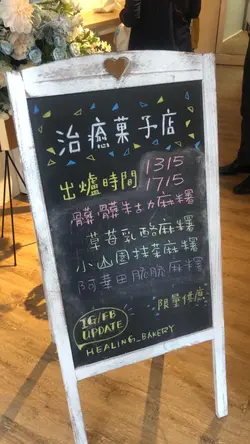 治癒菓子店
出爐時間 1315
1715
髒髒生古力麻糬
草莓乳酪麻糬
小山園抹茶麻糬
阿華田脆脆麻糬
限量供應
IG/FB
UPDATE
HEALING_BAKERY